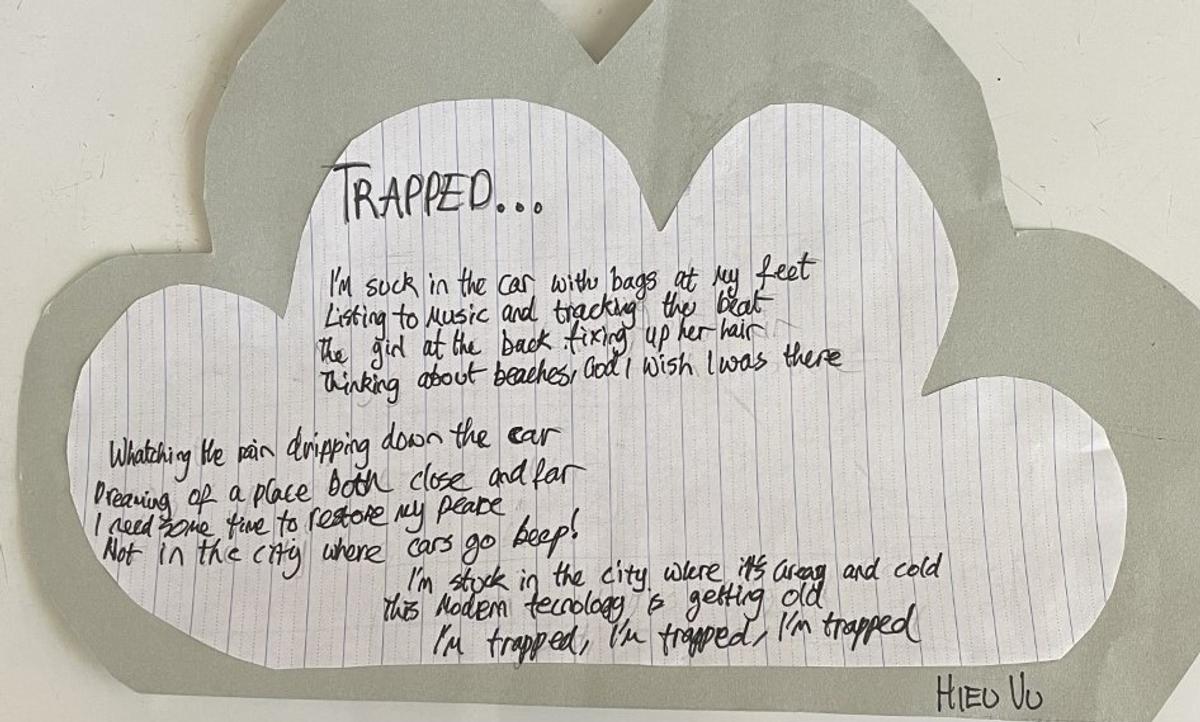 TRAPPED...
I'm suck in the car with bags at my feet
Listing to Music and tracking the beat
the girl at the back fixing up her hair
thinking about beaches, God I wish I was there
Whatching the rain dripping down the car
Dreaming of a place both close and far
I need some time to restore my peace
Not in the city where cars go beep!
I'm stuck in the city where it's and cold
this Modern tecnology is getting old
I'm trapped, I'm trapped, I'm trapped
HIEU VU